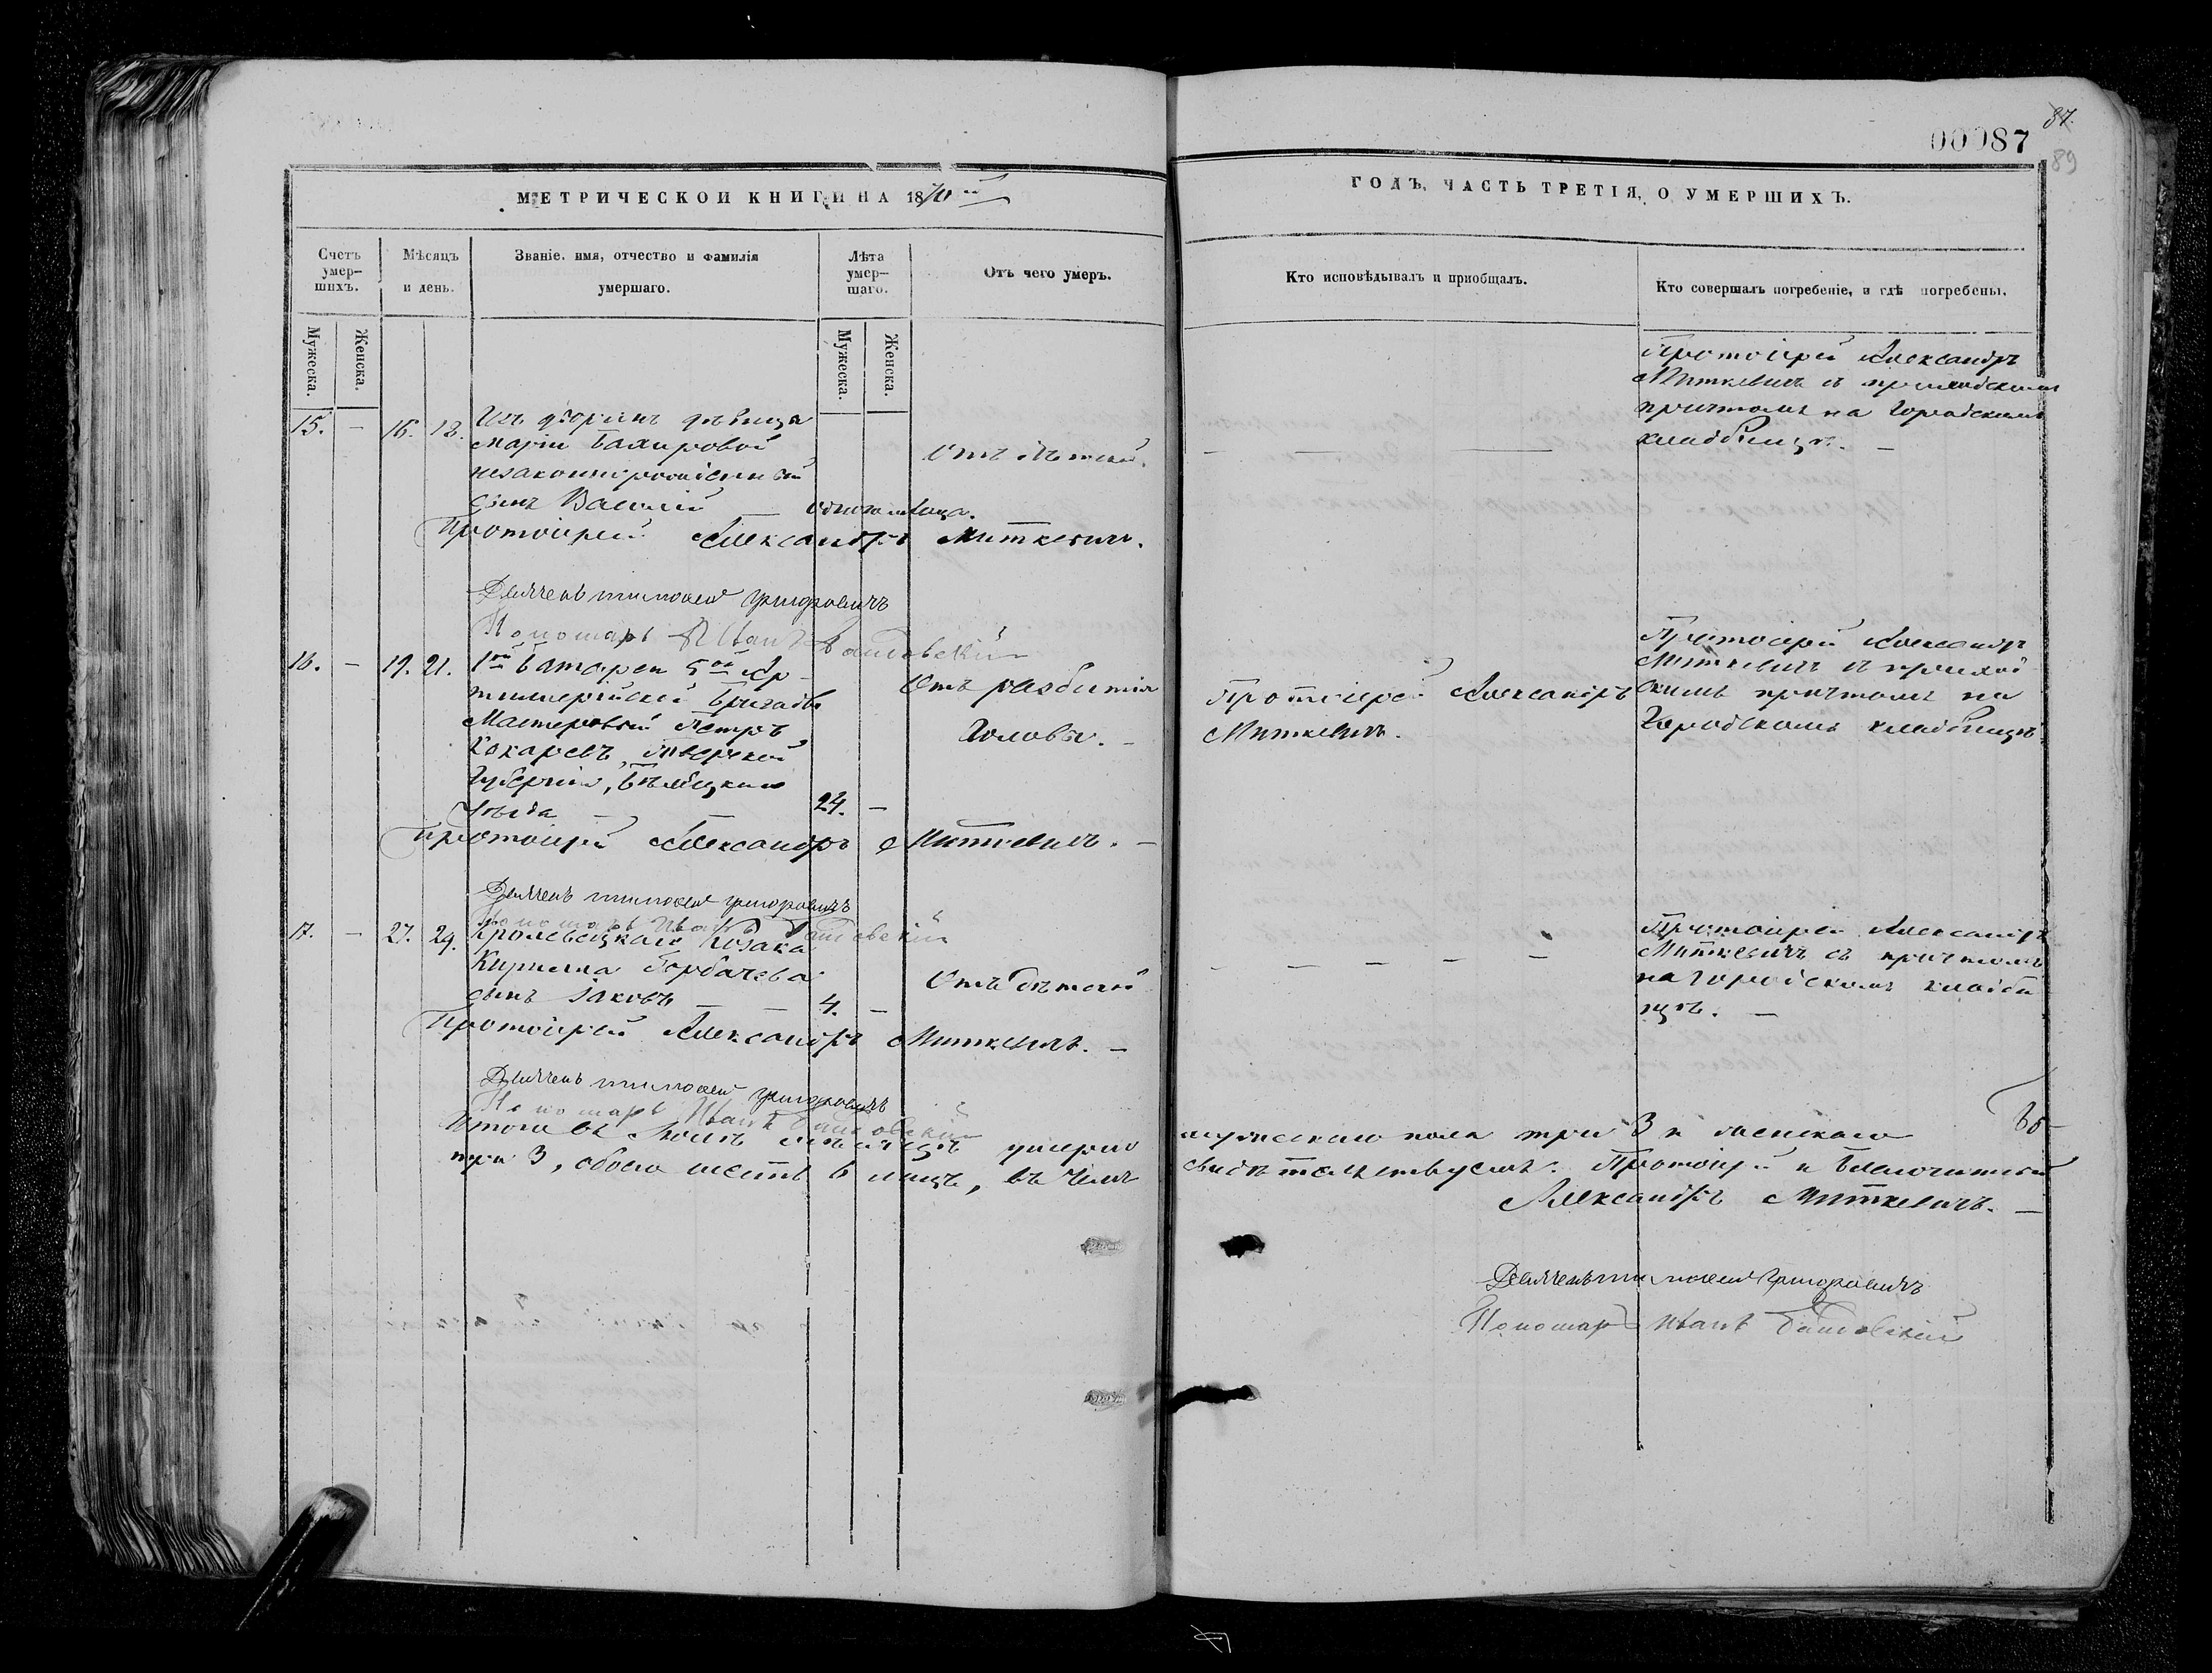 87.
00087
89
МЕТРИЧЕСКОЙ КНИГИ НА 1870й
Счетъ умер-
шихъ.
Мѣсяцъ
и день.
Званіе, имя, отчество и фамилія
умершаго.
Лѣта
умер-
шаго.
Отъ чего умеръ.
Мужеска.
Женска.
Мужеска.
Женска.
15. — 16. 18. Изъ дворянъ дѣвица
Маріи
незаконнорожденный
сынъ Василій — одного мѣсяца.
Отъ
Протоіерей Александръ Миткевичъ.
Дьячекъ Тимофей Григоровичъ
Пономарь Иванъ
16. — 19. 21. 1ой батареи 5ой Ар-
тиллерійской бригады
Мастеровый Петръ
Кокаревъ, Тверской
Губерніи, Бѣжецкаго
Уѣзда — 24. —
Отъ разбитія
Головы. —
Протоіерей Александръ Миткевичъ. —
Дьячекъ Тимофей Григоровичъ
Пономарь Иванъ
17. — 27. 29. Кролевецкаго Козака
Кирилла Горбачева
сынъ Іаковъ — 4. —
Отъ
Протоіерей Александръ Миткевичъ. —
Дьячекъ Тимофей Григоровичъ
Пономарь Иванъ
Итого въ Іюлѣ мѣсяцѣ умерло
три 3, обоего шесть 6 лицъ, въ чемъ
ГОДЪ, ЧАСТЬ ТРЕТІЯ, О УМЕРШИХЪ.
Кто исповѣдывалъ и пріобщалъ.
Кто совершалъ погребеніе, и гдѣ погребены.
Протоіерей Александръ
Миткевичъ съ приходскимъ
причтомъ на Городскомъ
кладбищѣ. —
Протоіерей Александръ
Миткевичъ.
Протоіерей Александръ
Миткевичъ съ приход
скимъ причтомъ на
Городскомъ кладбищѣ
Протоіерей Александръ
Миткевичъ съ причтомъ
на Городскомъ кладби
щѣ. —
мужескаго пола три 3 и женскаго
свидѣтельствуемъ. Протоіерей и Благочинный
Александръ Миткевичъ. —
Дьячекъ Тимофей Григоровичъ
Пономарь Иванъ